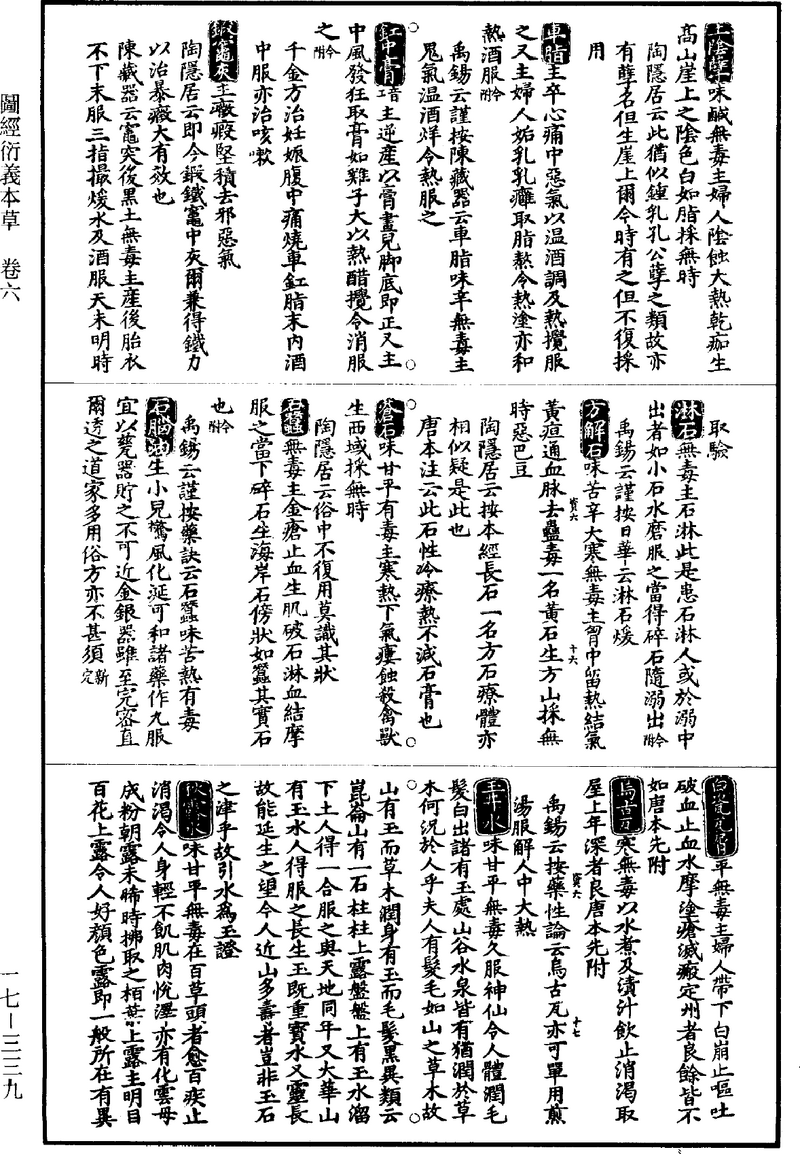 圖經衍義本草　卷六
土陰孽味鹹無毒主婦人陰蝕大熱乾痂生
高山崖上之陰色白如脂採無時
陶隱居云此猶似鍾乳孔公孽之類故亦
有孽名但生崖上爾今時有之但不復採
用
車脂主卒心痛中惡氣以溫酒調及熱攪服
之又主婦人妬乳乳癰取脂熬令熱塗亦和
熱酒服附今
禹錫云謹按陳藏器云車脂味辛無毒主
鬼氣溫酒烊令熱服之
釭中膏音工主逆產以膏畫兒脚底即正又主
中風發狂取膏如雞子大以熱醋攪令消服
之附今
千金方治妊娠腹中痛燒車釭脂末內酒
中服亦治咳嗽
鍛竈灰主癥瘕堅積去邪惡氣
陶隱居云即今鍛鐵竈中灰爾兼得鐵力
以治暴癥大有效也
陳藏器云竈突後黑土無毒主產後胎衣
不下末服三指撮煖水及酒服天未明時
取驗
淋石無毒主石淋此是患石淋人或於溺中
出者如小石水磨服之當得碎石隨溺出附今
禹錫云謹按日華云淋石煖
方解石味苦辛大寒無毒主胷中留熱結氣
黃疸通血脉去蠱毒一名黃石生方山採無
時惡巴豆
陶隱居云按本經長石一名方石療體亦
相似疑是此也
唐本注云此石性冷療熱不減石膏也
蒼石味甘平有毒主寒熱下氣瘻蝕殺禽獸
生西域採無時
陶隱居云俗中不復用莫識其狀
石蠶無毒主金瘡止血生肌破石淋血結摩
服之當下碎石生海岸石傍狀如蠶其實石
也附今
禹錫云謹按藥訣云石蠶味苦熱有毒
石腦油主小兒驚風化涎可和諸藥作丸服
宜以甆器貯之不可近金銀器雖至完密直
爾透之道家多用俗方亦不甚須新定
白瓷瓦屑平無毒主婦人帶下白崩止嘔吐
破血止血水摩塗瘡滅瘢定州者良餘皆不
如唐本先附
烏古瓦寒無毒以水煮及漬汁飲止消渴取
屋上年深者良唐本先附
禹錫云按藥性論云烏古瓦亦可單用煎
湯服解人中大熱
玉井水味甘平無毒久服神仙令人體潤毛
髮白出諸有玉處山谷水泉皆有猶潤於草
木何況於人乎夫人有髮毛如山之草木故
山有玉而草木潤身有玉而毛髮黑異類云
崑崙山有一石柱柱上露盤盤上有玉水溜
下土人得一合服之與天地同年又大華山
有玉水人得服之長生玉既重寶水又靈長
故能延生之望今人近山多壽者豈非玉石
之津乎故引水為玉證
秋露水味甘平無毒在百草頭者愈百疾止
消渴令人身輕不飢肌肉悅澤亦有化雲母
成粉朝露未晞時拂取之栢葉上露主明目
百花上露令人好顏色露即一般所在有異
一七—三三九